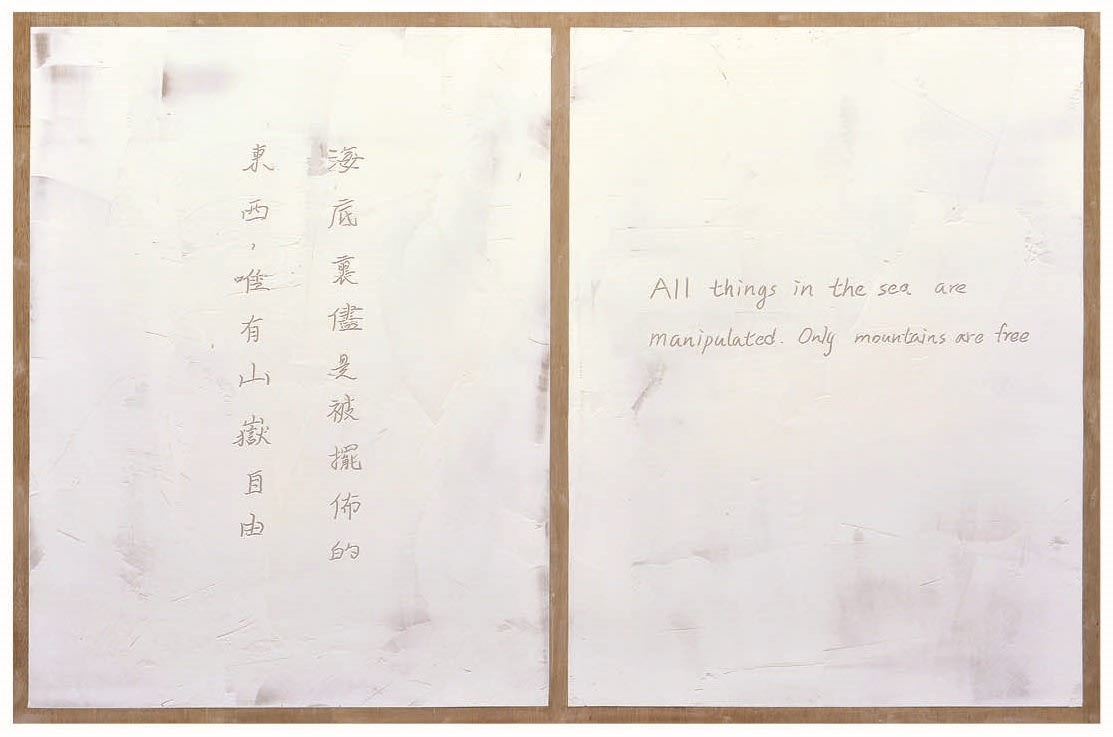 海底裏儘是被擺佈的
東西，唯有山嶽自由
All things in the sea are
manipulated. Only mountains are free